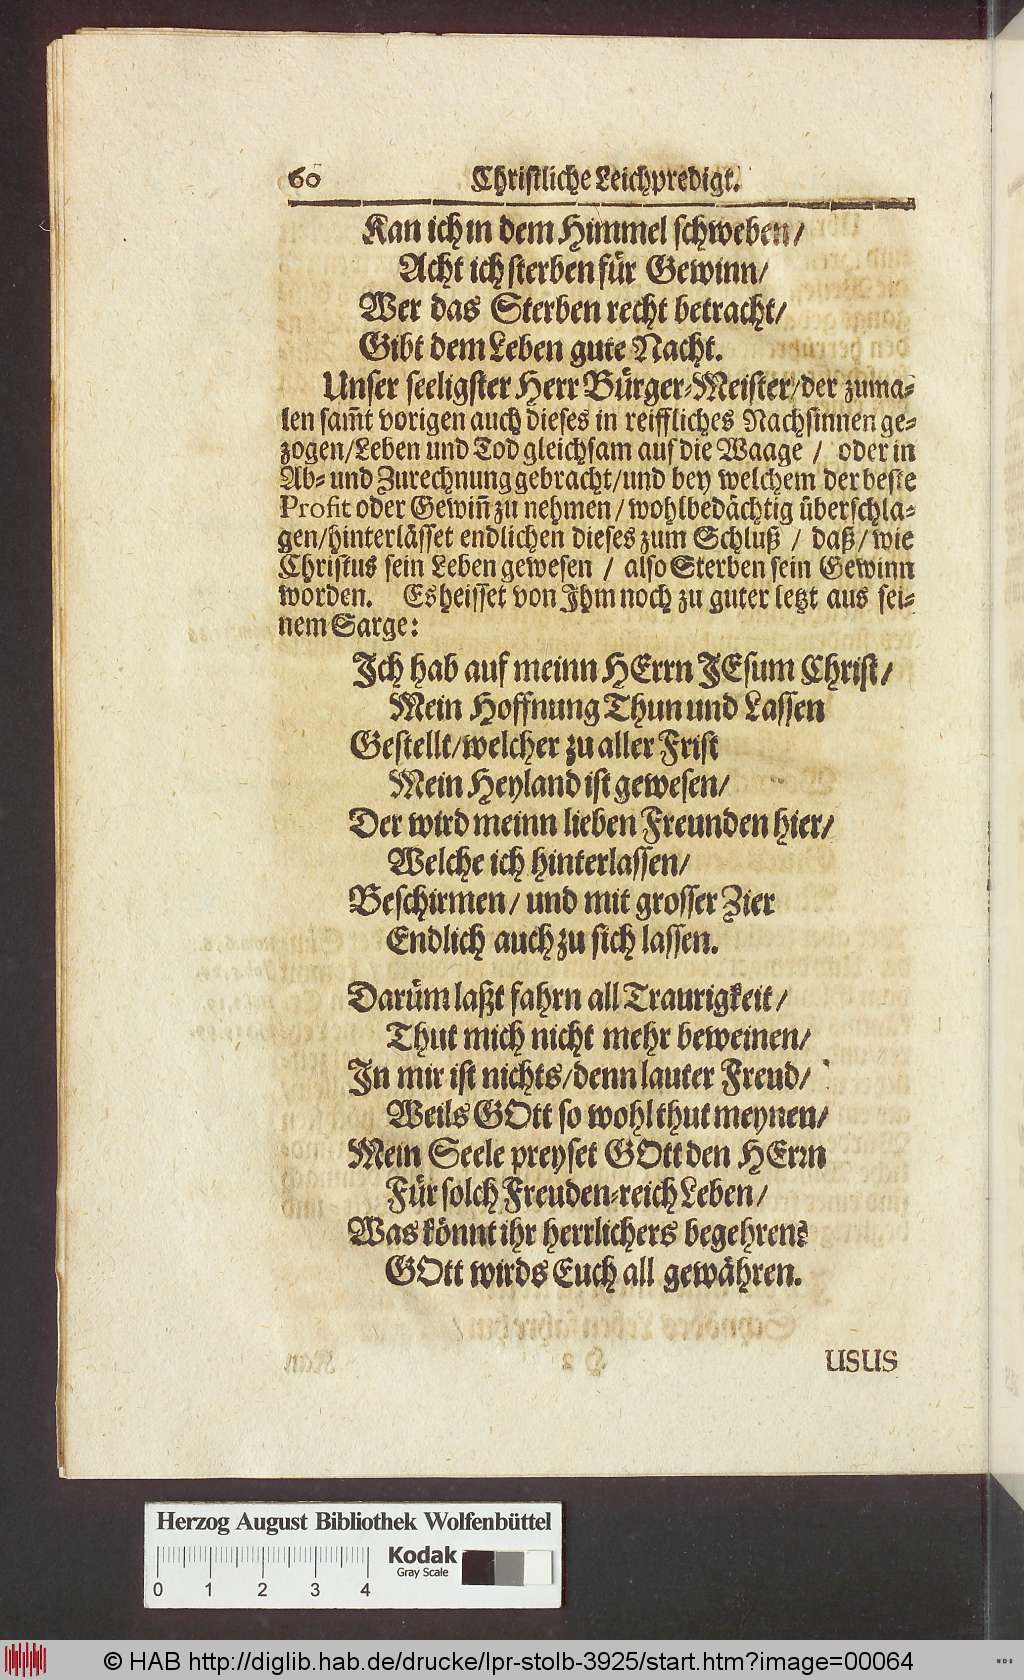 60 Christliche Leichpredigt.
Kan ich in dem Himmel schweben/
Acht ich sterben für Gewinn/
Wer das Sterben recht betracht/
Gibt dem Leben gute Nacht.
Unser seeligster Herr Bürger-Meister/der zuma-
len sam̃t vorigen auch dieses in reiffliches Nachsinnen ge-
zogen/Leben und Tod gleichsam auf die Waage / oder in
Ab- und Zurechnung gebracht/und bey welchem der beste
Profit oder Gewiñ zu nehmen/wohlbedächtig überschla-
gen/hinterlässet endlichen dieses zum Schluß / daß/wie
Christus sein Leben gewesen / also Sterben sein Gewinn
worden. Es heisset von Ihm noch zu guter letzt aus sei-
nem Sarge:
Ich hab auf meinn HErrn JEsum Christ/
Mein Hoffnung Thun und Lassen
Gestellt/welcher zu aller Frist
Mein Heyland ist gewesen/
Der wird meinn lieben Freunden hier/
Welche ich hinterlassen/
Beschirmen/ und mit grosser Zier
Endlich auch zu sich lassen.
Darüm laßt fahrn all Traurigkeit/
Thut mich nicht mehr beweinen/
In mir ist nichts/denn lauter Freud/
Weils GOtt so wohl thut meynen/
Mein Seele preyset GOtt den HErrn
Für solch Freuden-reich Leben/
Was könnt ihr herrlichers begehren?
GOtt wirds Euch all gewähren.
USUS
Herzog August Bibliothek Wolfenbüttel
Kodak
Gray Scale
0 1 2 3 4
© HAB http://diglib.hab.de/drucke/lpr-stolb-3925/start.htm?image=00064